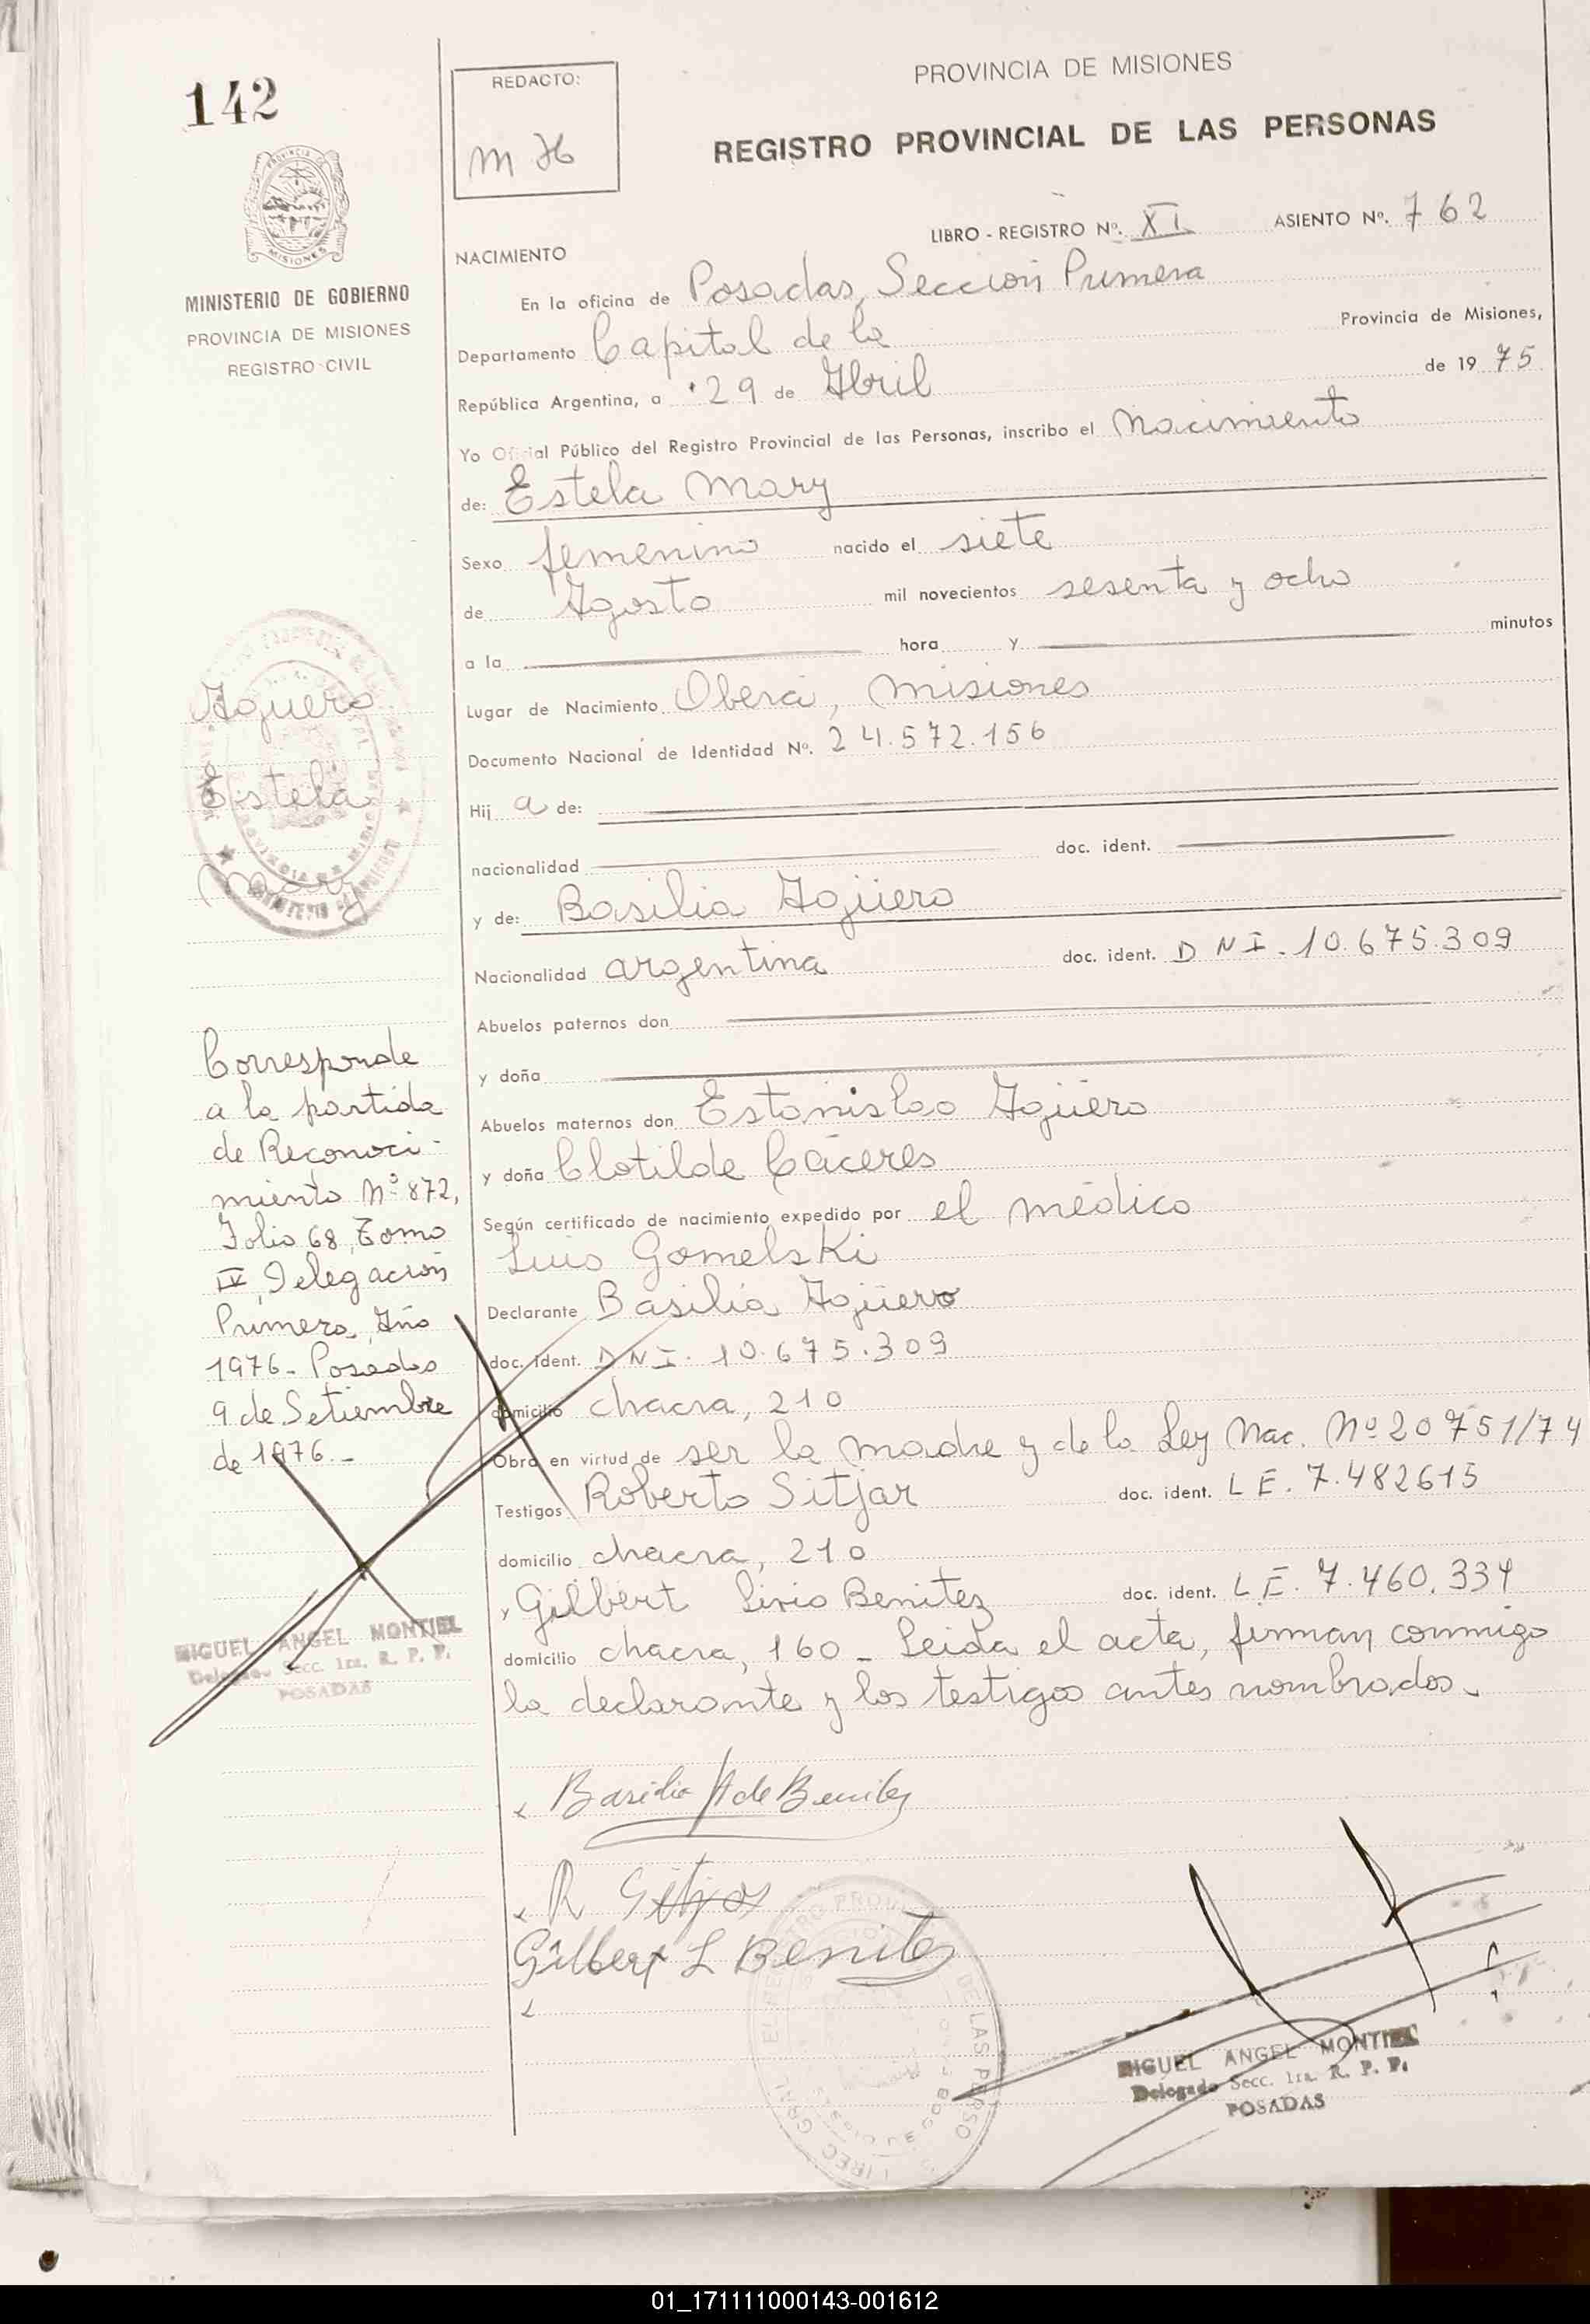 142
REDACTO:
PROVINCIA DE MISIONES
REGISTRO PROVINCIAL DE LAS PERSONAS
MINISTERIO DE GOBIERNO
PROVINCIA DE MISIONES
REGISTRO CIVIL
LIBRO - REGISTRO Nº. XI ASIENTO Nº. 762
NACIMIENTO
En la oficina de Posadas, Sección Primera
Departamento Capital de la Provincia de Misiones,
República Argentina, a 29 de Abril de 19 75
Yo Oficial Público del Registro Provincial de las Personas, inscribo el Nacimiento
de: Estela Mary
Sexo femenino nacido el siete
de Agosto mil novecientos sesenta y ocho
a la hora y minutos
Lugar de Nacimiento Oberá, Misiones
Documento Nacional de Identidad Nº. 24.572.156
Hij a de:
nacionalidad doc. ident.
y de: Basilia Agüero
Nacionalidad argentina doc. ident. DNI. 10.675.309
Abuelos paternos don
y doña
Abuelos maternos don Estanislao Agüero
y doña Clotilde Cáceres
Según certificado de nacimiento expedido por el médico
Luis Gomelski
Declarante Basilia Agüero
doc. ident. DNI. 10.675.309
domicilio chacra, 210
Obra en virtud de ser la madre y de la Ley Nac. Nº 20751/74
Testigos Roberto Sitjar doc. ident. LE. 7.482615
domicilio chacra, 210
y Gilbert Livio Benitez doc. ident. LE. 7.460.334
domicilio chacra, 160 - Leida el acta, firman conmigo
la declarante y los testigos antes nombrados.
Agüero
Estela
Mary
Corresponde
a la partida
de Reconoci-
miento Nº 872,
Folio 68, Tomo
IV, Delegación
Primera, Año
1976 - Posadas
9 de Setiembre
de 1976.-
MIGUEL ANGEL MONTIEL
Delegado Secc. 1ra. R. P. P.
POSADAS
Basilia A de Benitez
Gilbert L Benitez
MIGUEL ANGEL MONTIEL
Delegado Secc. 1ra. R. P. P.
POSADAS
01_171111000143-001612